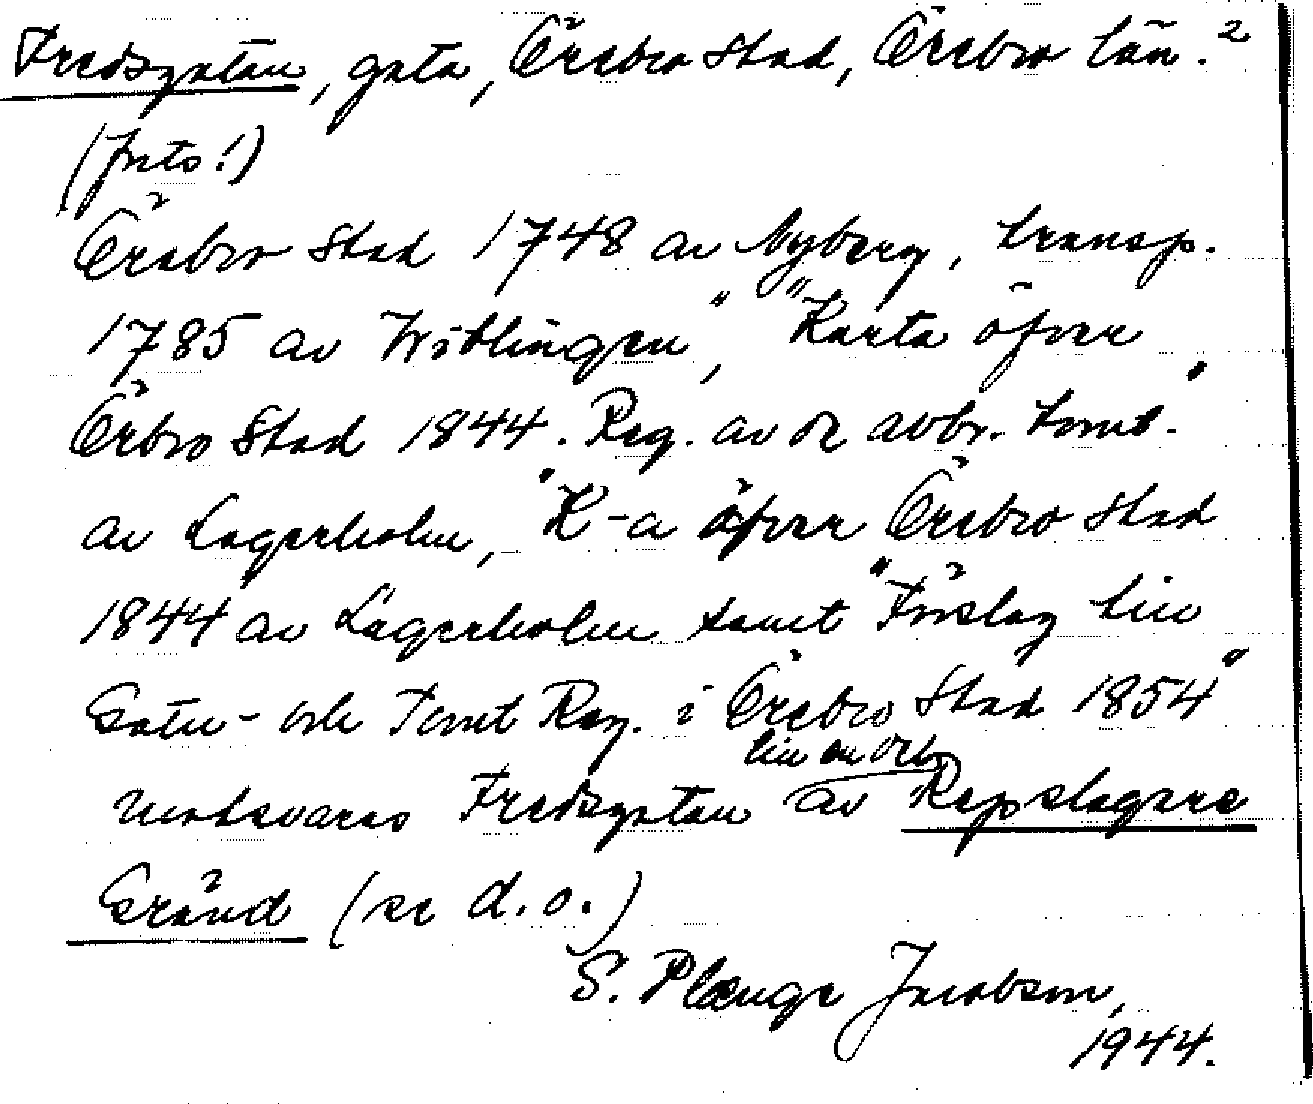 Fredsgatan, gata, Örebro Stad, Örebro län. 2
(forts.!)
Örebro Stad 1748 av Nyberg, transp.
1785 av Wiblingen", "Karta öfver
Örbro Stad 1844. Reg. av de avbr. tomt."
av Lagerholm, "K-a öfver Örebro Stad
1844 av Lagerholm samt "Förslag till
Gatu- och Tomt Reg. i Örebro Stad 1854"
till en del
motsvaras Fredsgatan av Repslagare
Gränd (se d.o.)
S. Plænge Jacobson,
1944.